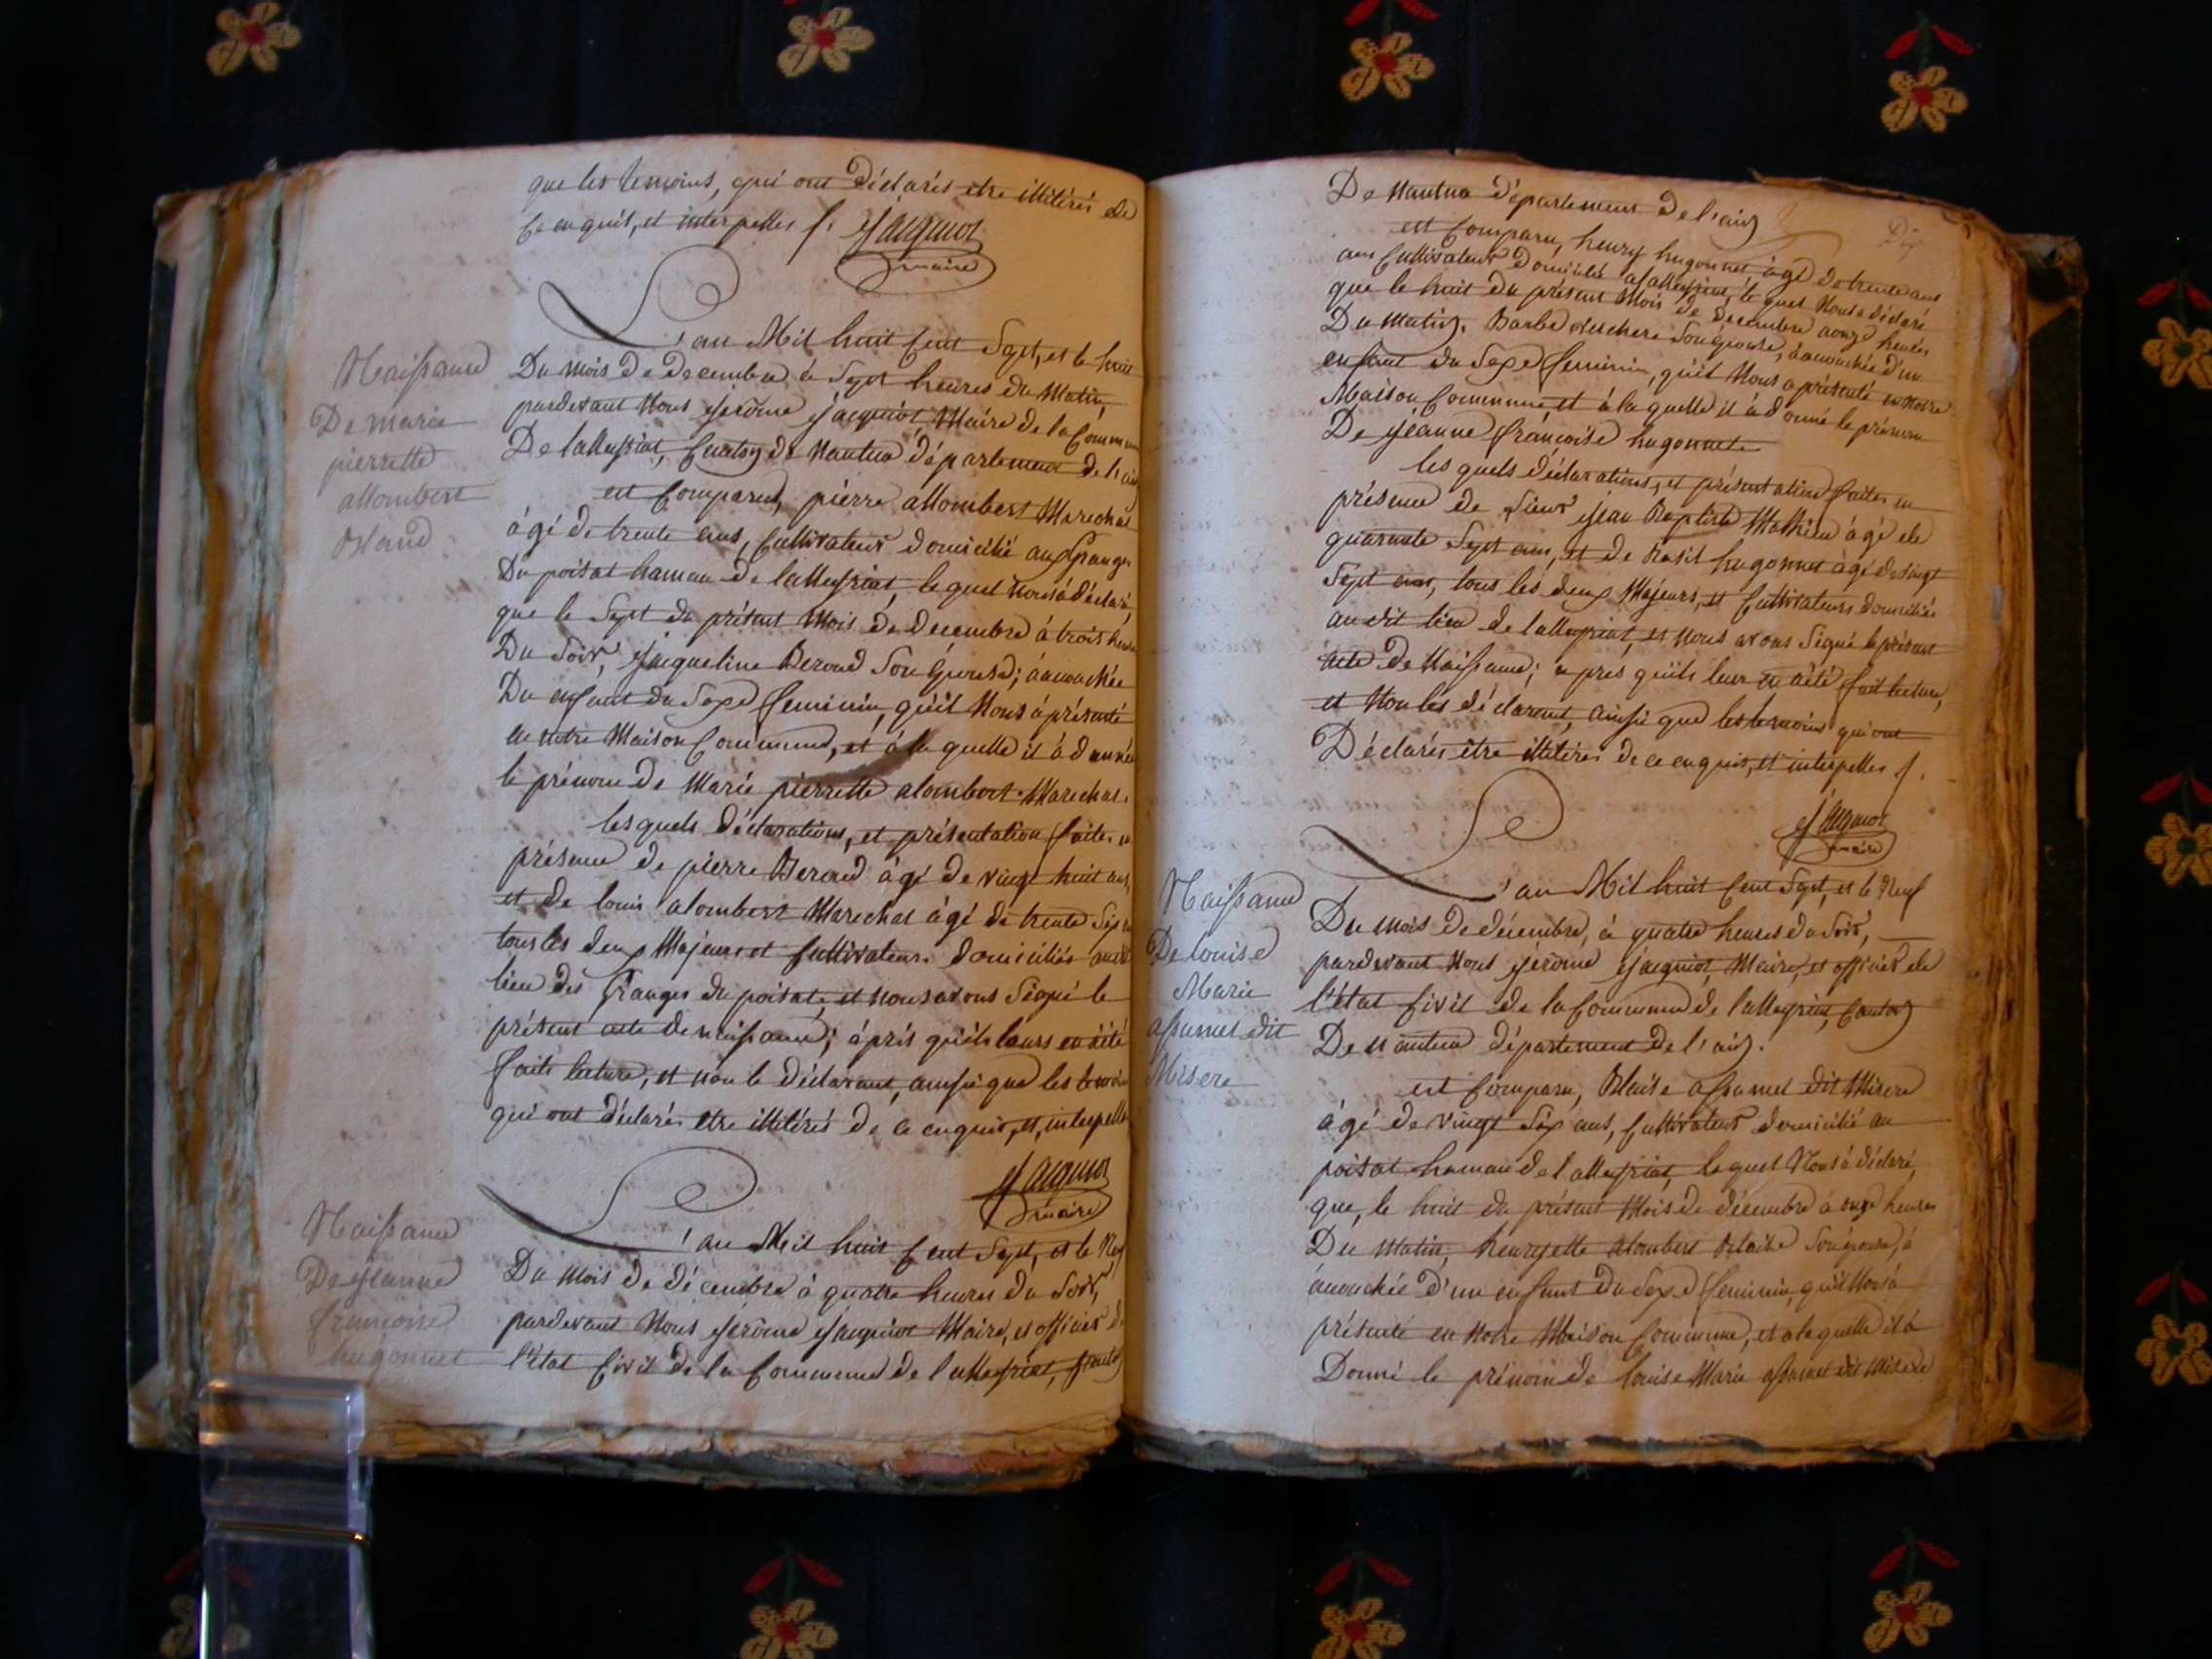 que les temoins, qui ont déclarés etre illitérés de
ce enquis, et interpellés /. Jacquiot
maire
L'an Mil huit Cent Sept, et le huit
Du mois De Decembre à Sept heures du Matin,
pardevant Nous Jérôme Jacquiot, Maire de la Commune
De lalleyriat, Canton de Nantua département de l'ain
est Comparu, pierre allombert Marechal
âgé de trente ans, Cultivateur domicilié aux Granges
Du poisat hameau de lalleyriat, lequel nous à déclaré,
que le Sept du présent Mois de Decembre à trois heures
Du Soir, Jacqueline Beroud Son épouse; à accouchée
Du enfant du Sexe feminin, qu'il Nous à présenté
en notre Maison Commune, et à la quelle il à donnée
le prénom de Marie pierrette alombert Marechal.
lesquels déclarations, et présentation faites en
présence de pierre Beroud âgé de vingt huit ans,
et de louis alombert Marechal âgé de trente Sept
tous les deux Majeurs et Cultivateurs domiciliés audit
lieu des Granges du poisat, et nous avons Signé le
présent acte de naissance; àprès qu'ils leurs en àété
faite lecture, et non le déclarant, ainsi que les temoins
qui ont déclarés etre illitérés de ce enquis, et, interpellés
Jacquiot
maire
Naissance
De marie
pierrette
allombert
L'an Mil huit Cent Sept, et le Neuf
Du Mois de décembre à quatre heures du Soir,
pardevant Nous Jérôme Jacquiot Maire, et officier de
l'état Civil de la Commune de lalleyriat, Canton
Naissance
De Jeanne
francoise
hugonnet
De Nantua département de l'ain
Dix
est Comparu, henry hugonnet, âgé de trente ans
ans Cultivateur domicilié à lalleyriat, le quel Nous à déclaré
que le huit du présent Mois de Decembre à onze heures
Du Matin, Barbe Son épouse, à accouchée d'un
enfant du Sexe feminin, qu'il Nous à présenté en Notre
Maison Commune, et à la quelle il à donné le prénom
De Jéanne françoise hugonnet.
lesquels déclarations, et présentation faites en
présence de Sieur Jean Baptiste Mathieu âgé de
quarante Sept ans, et de Basil hugonnet âgé de vingt
Sept ans, tous les deux Majeurs, et Cultivateurs domiciliés
audit lieu de lalleyriat, et Nous avons Signé le présent
acte De Naissance; apres qu'ils leur en àété fait lecture,
et Non les déclarant, ainsi que les temoins qui ont
Déclarés être illitérés de ce enquis, et interpellés /.
Jacquiot
maire
L'an Mil huit Cent Sept, et le Neuf
Du mois De décembre, à quatre heures du Soir,
pardevant Nous Jérôme Jacquiot, Maire, et officier de
l'état Civil de la Commune de lalleyriat, Canton
De Nantua département de l'ain.
est Comparu, Blaise assumel dit Misere
âgé de vingt Six ans, Cultivateur domicilié au
poisat hameau de lalleyriat, lequel Nous à déclaré,
que, le huit du présent Mois de décembre à onze heures
Du Matin, henryette alombert Blaise Son épouse, à
accouchée d'un enfant du Sexe feminin, qu'il Nous à
présenté en Notre Maison Commune, et à laquelle il à
Donné le prénom de louise Marie assumel dit Misere
Naissance
De louise
Marie
assumel dit
Misere